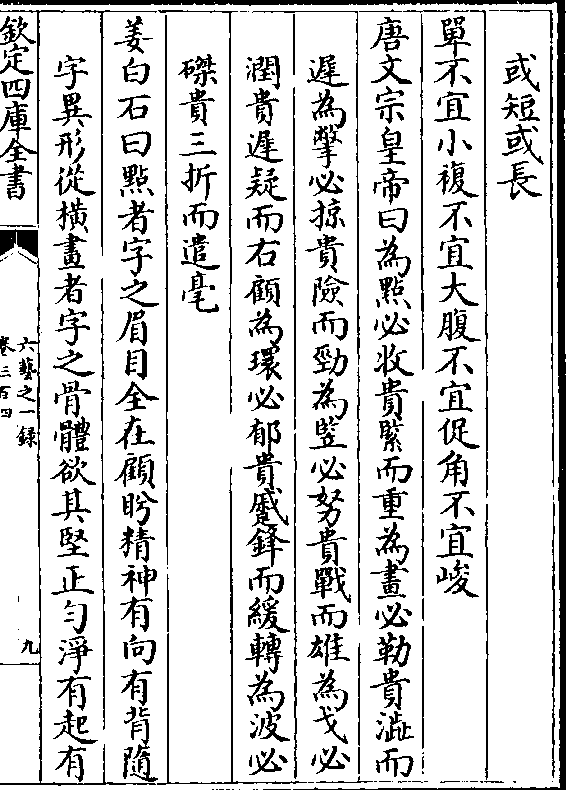 或短或長
單不宜小複不宜大腹不宜促角不宜峻
唐文宗皇帝曰為點必收貴緊而重為畫必勒貴澁而
遲為撆必掠貴險而勁為竪必努貴戰而雄為戈必
潤貴遲疑而右顧為環必郁貴蹙鋒而緩轉為波必
磔貴三折而遣毫
姜白石曰點者字之眉目全在顧盼精神有向有背隨
字異形從橫畫者字之骨體欲其堅正勻淨有起有
欽定四庫全書
六藝之一録
卷三百四
九